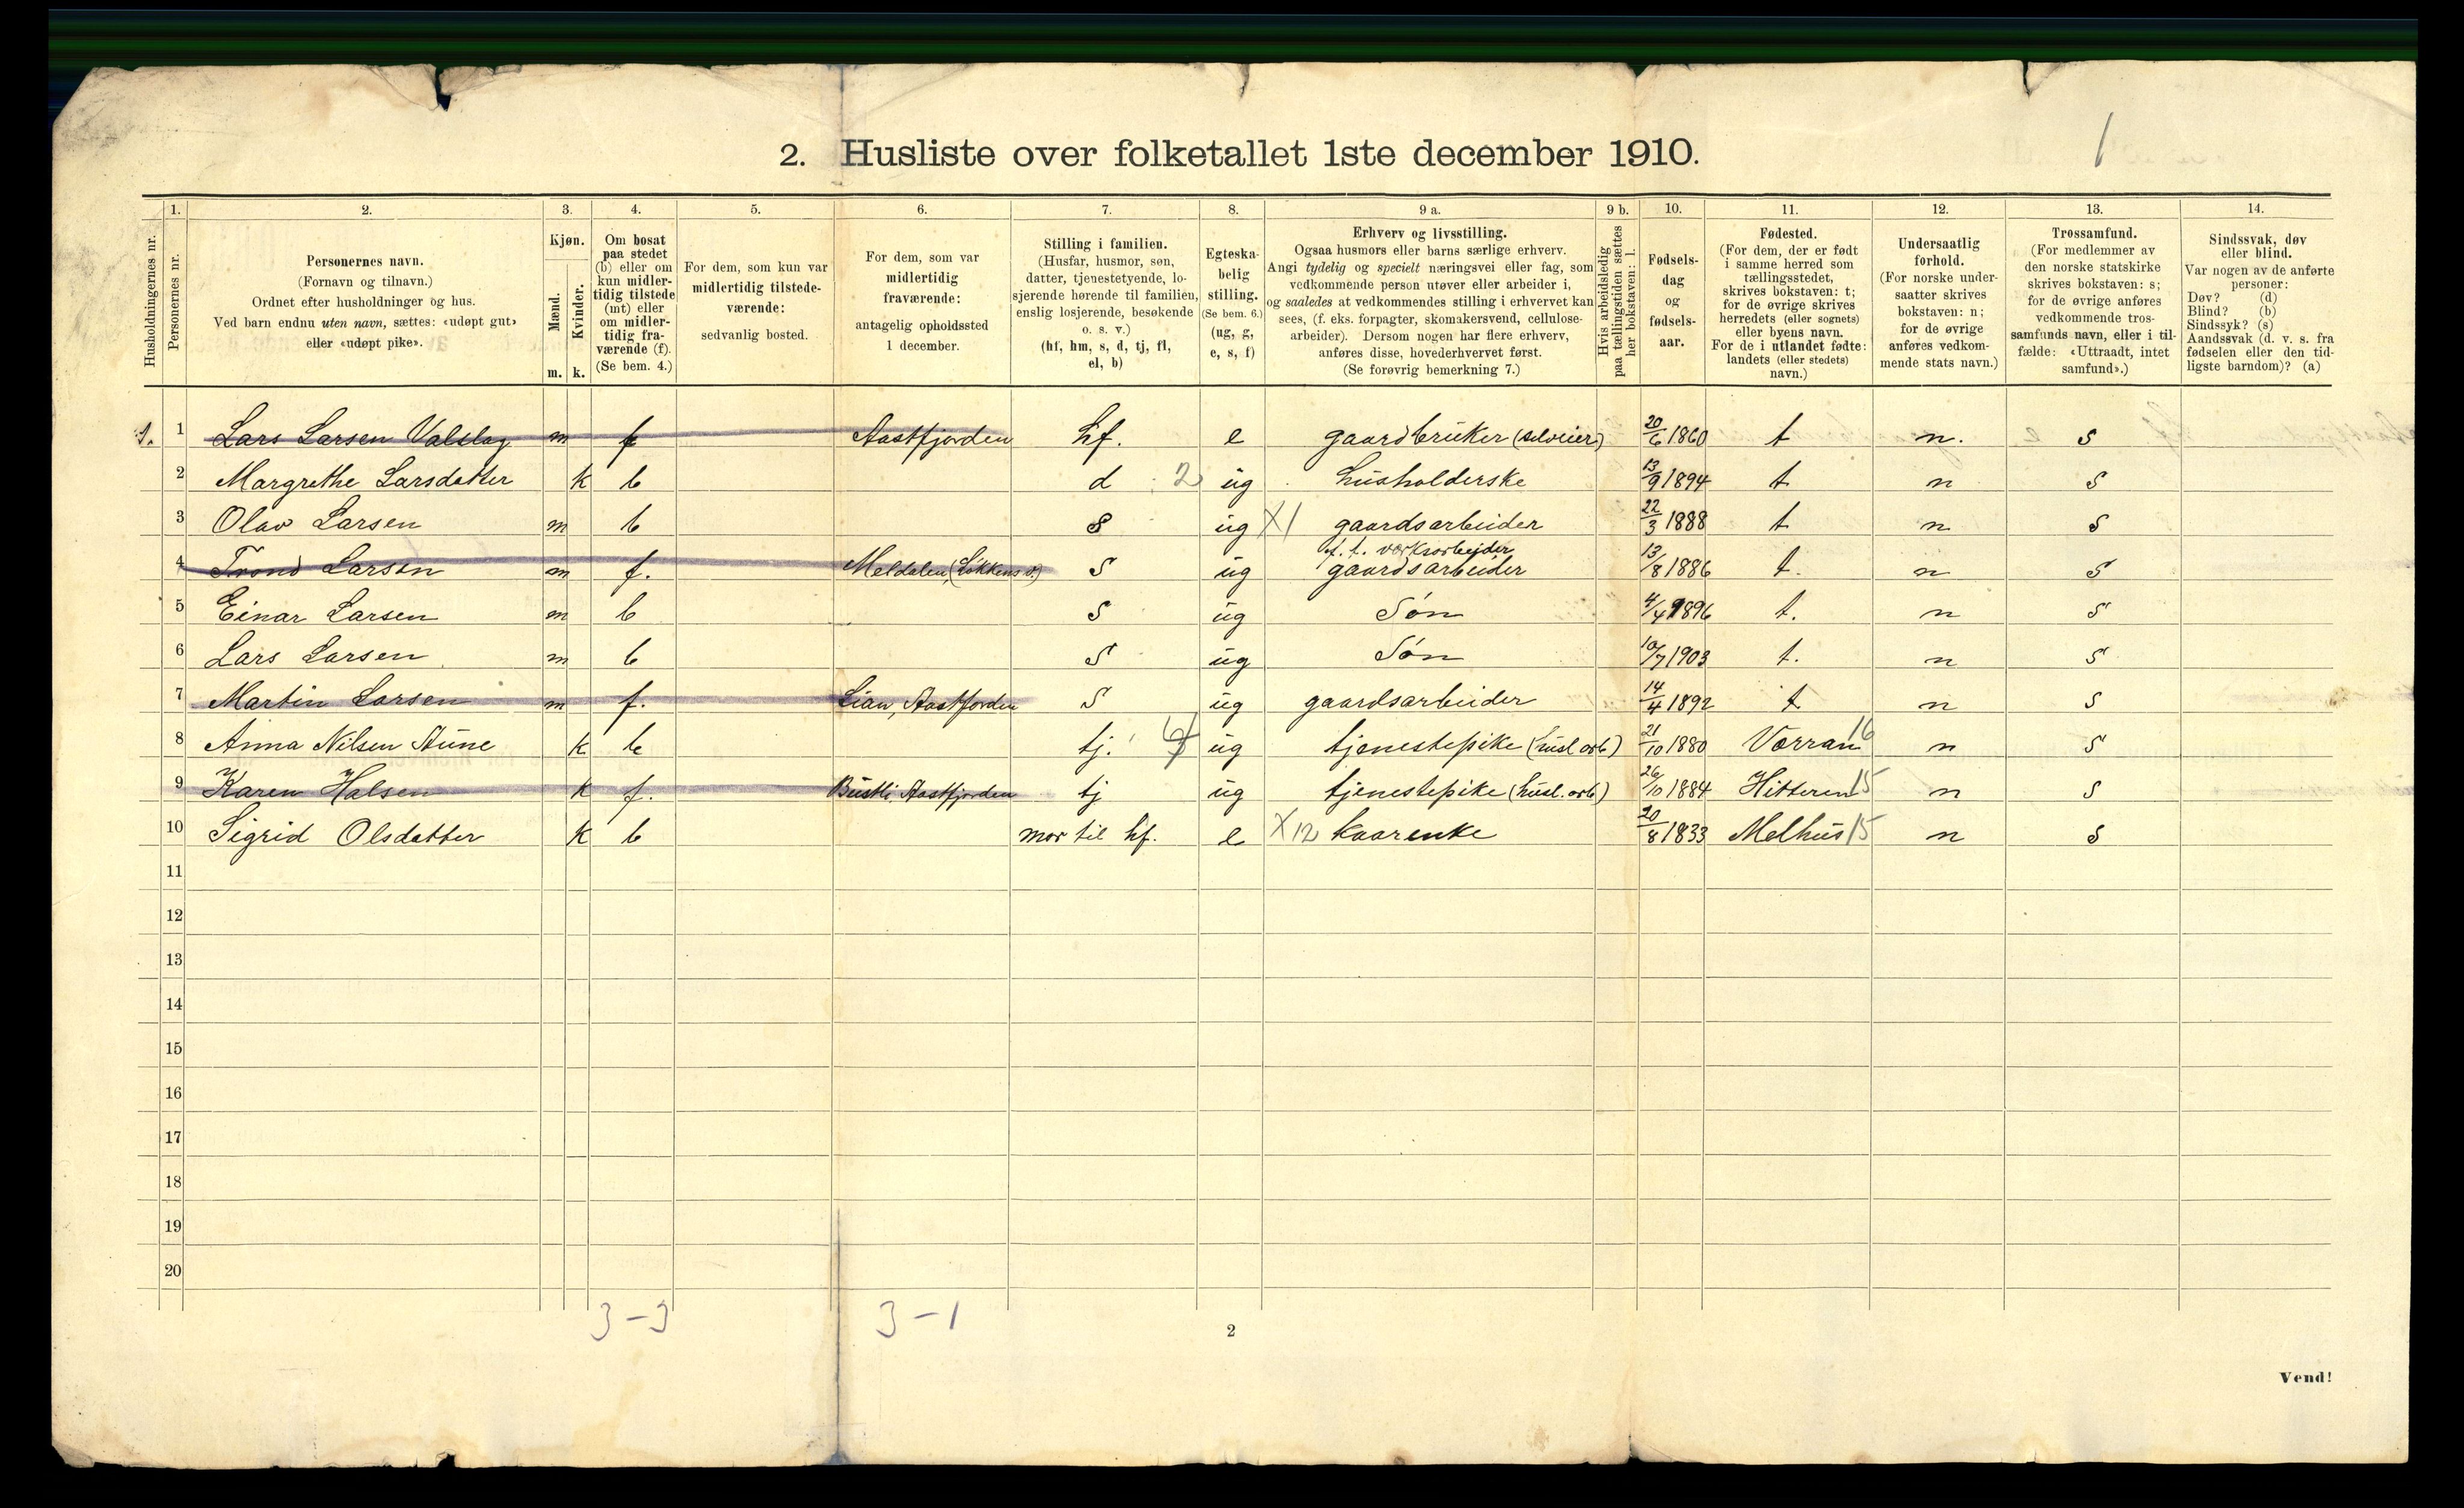 1
2. Husliste over folketallet 1ste december 1910.
Husholdningernes nr.
1.
Personernes nr.
2.
Personernes navn.
(Fornavn og tilnavn.)
Ordnet efter husholdninger og hus.
Ved barn endnu uten navn, sættes: «udøpt gut»
eller «udøpt pike».
3.
Kjøn.
Mænd.
Kvinder.
m. k.
4.
Om bosat
paa stedet
(b) eller om
kun midler-
tidig tilstede
(mt) eller
om midler-
tidig fra-
værende (f).
(Se bem. 4.)
5.
For dem, som kun var
midlertidig tilstede-
værende:
sedvanlig bosted.
6.
For dem, som var
midlertidig
fraværende:
antagelig opholdssted
1 december.
7.
Stilling i familien.
(Husfar, husmor, søn,
datter, tjenestetyende, lo-
sjerende hørende til familien,
enslig losjerende, besøkende
o. s. v.)
(hf, hm, s, d, tj, fl,
el, b)
8.
Egteska-
belig
stilling.
(Se bem. 6.)
(ug, g,
e, s, f)
9 a.
Erhverv og livsstilling.
Ogsaa husmors eller barns særlige erhverv.
Angi tydelig og specielt næringsvei eller fag, som
vedkommende person utøver eller arbeider i,
og saaledes at vedkommendes stilling i erhvervet kan
sees, (f. eks. forpagter, skomakersvend, cellulose-
arbeider). Dersom nogen har flere erhverv,
anføres disse, hovederhvervet først.
(Se forøvrig bemerkning 7.)
9 b.
Hvis arbeidsledig
paa tællingstiden sættes
her bokstaven: l.
10.
Fødsels-
dag
og
fødsels-
aar.
11.
Fødested.
(For dem, der er født
i samme herred som
tællingsstedet,
skrives bokstaven: t;
for de øvrige skrives
herredets (eller sognets)
eller byens navn.
For de i utlandet fødte:
landets (eller stedets)
navn.)
12.
Undersaatlig
forhold.
(For norske under-
saatter skrives
bokstaven: n;
for de øvrige
anføres vedkom-
mende stats navn.)
13.
Trossamfund.
(For medlemmer av
den norske statskirke
skrives bokstaven: s;
for de øvrige anføres
vedkommende tros-
samfunds navn, eller i til-
fælde: «Uttraadt, intet
samfund».)
14.
Sindssvak, døv
eller blind.
Var nogen av de anførte
personer:
Døv? (d)
Blind? (b)
Sindssyk? (s)
Aandssvak (d. v. s. fra
fødselen eller den tid-
ligste barndom)? (a)
1. 1 Lars Larsen Valslag m f Aastfjorden hf. e gaardbruker (selveier) 20/6 1860 t n. s
2 Margrethe Larsdatter k b d 2 ug husholderske 13/9 1894 t n s
3 Olav Larsen m b s ug X1 gaardsarbeider 22/3 1888 t n s
4 Trond Larsen m f. Meldalen, (Løkkens v.) s ug f. t. verksarbeider gaardsarbeider 13/8 1886 t. n s
5 Einar Larsen m b s ug Søn 4/4 1896 t. n s
6 Lars Larsen m b s ug Søn 10/7 1903 t. n s
7 Martin Larsen m f. Lian, Aastfjorden s ug gaardsarbeider 14/4 1892 t n s
8 Anna Nilsen Aune k b tj. 4 ug tjenestepike (husl. arb) 21/10 1880 Værran 16 n s
9 Karen Halsen k f. Bustli, Aastfjorden tj ug tjenestepike (husl. arb) 26/10 1884 Hitteren 15 n s
10 Sigrid Olsdatter k b mor til hf. e X12 kaarenke 20/8 1833 Melhus 15 n s
11
12
13
14
15
16
17
18
19
20
3-3 3-1
2
Vend!